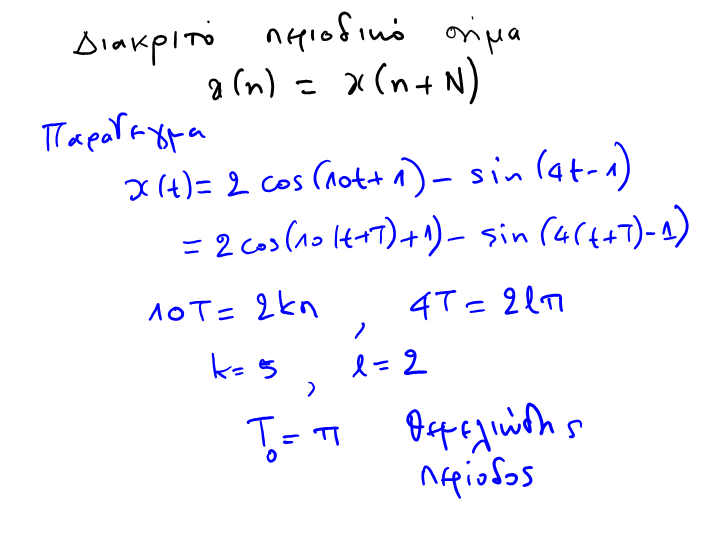 Διακριτό περιοδικό σήμα
x(n) = x(n+N)
Παράδειγμα
x(t) = 2 cos(10t+1) - sin(4t-1)
= 2 cos(10(t+T)+1) - sin(4(t+T)-1)
10T = 2kπ , 4T = 2lπ
k=5 , l=2
T₀ = π θεμελιώδης
περίοδος